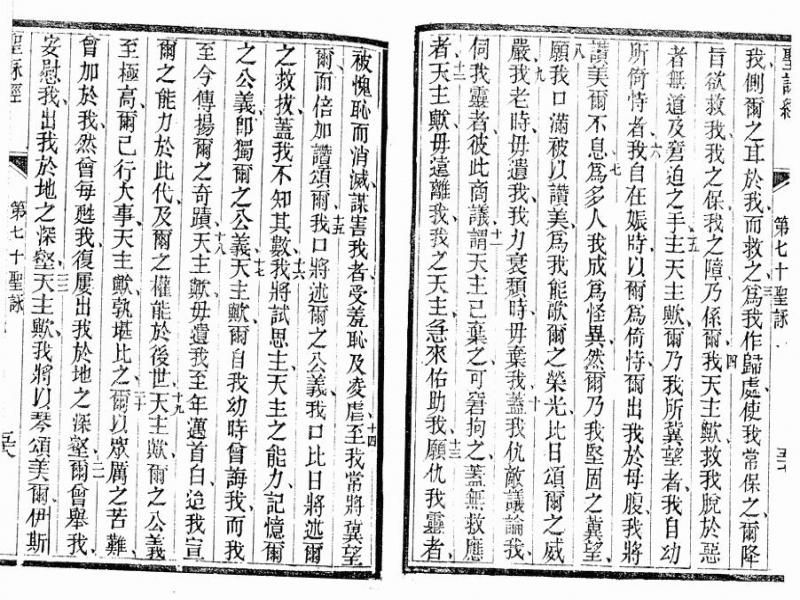 聖詠經 第七十聖詠
我側爾之耳於我而救之三爲我作歸處使我常保之爾降
旨欲救我我之保我之障乃係爾四我天主歟救我脫於惡
者無道及窘迫之手五主天主歟爾乃我所冀望者我自幼
所倚恃者六我自在娠時以爾爲倚恃爾出我於母腹我將
讚美爾不息七爲多人我成爲怪異然爾乃我堅固之冀望
八願我口滿被以讚美爲我能歌爾之榮光比日頌爾之威
嚴九我老時毋遺我我力衰頽時毋棄我十蓋我仇敵議論我
伺我靈者彼此商議十一謂天主已棄之可窘拘之蓋無救應
者十二天主歟毋遠離我我之天主急來佑助我十三願仇我靈者
被愧恥而消滅謀害我者受羞恥及凌虐十四至我常將冀望
爾而倍加讚頌爾十五我口將述爾之公義我口比日將述爾
之救拔蓋我不知其數十六我將試思主天主之能力記憶爾
之公義即獨爾之公義十七天主歟爾自我幼時曾誨我而我
至今傳揚爾之奇蹟十八天主歟毋遺我至年邁首白迨我宣
爾之能力於此代及爾之權能於後世十九天主歟爾之公義
至極高爾已行大事天主歟孰堪比之二十爾以衆厲之苦難
曾加於我然曾每甦我復屢出我於地之深壑二一爾曾舉我
安慰我出我於地之深壑二二天主歟我將以琴頌美爾伊斯
聖詠經 第七十聖詠 五十八